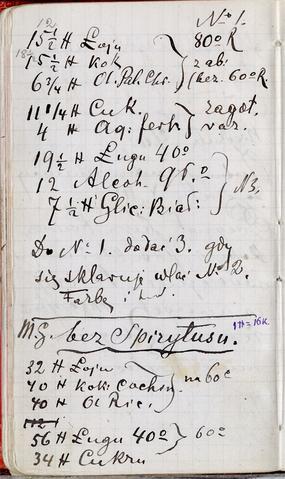 12
15 1/2 H Łoju No 1.
18 15 1/2 H Kok 80° R
6 3/4 H Ol. Pal. Chr. zab: (bez. 60° R.
11 1/4 H Cuk. zagot.
4 H Aq: ferh var.
19 1/2 H Ługu 40°
12 Alcoh. 96.° N3.
7 1/2 H Glic: Biał:
Do No 1. dodać 3. gdy
się sklaruje wlać No 2.
Farbę i
M.G. bez Spirytusu. 1H=16K.
32 H Łoju
40 H Kok: Cochin. na 60°
40 H Ol Ric.
112
56 H Ługu 40° 60°
34 H Cukru